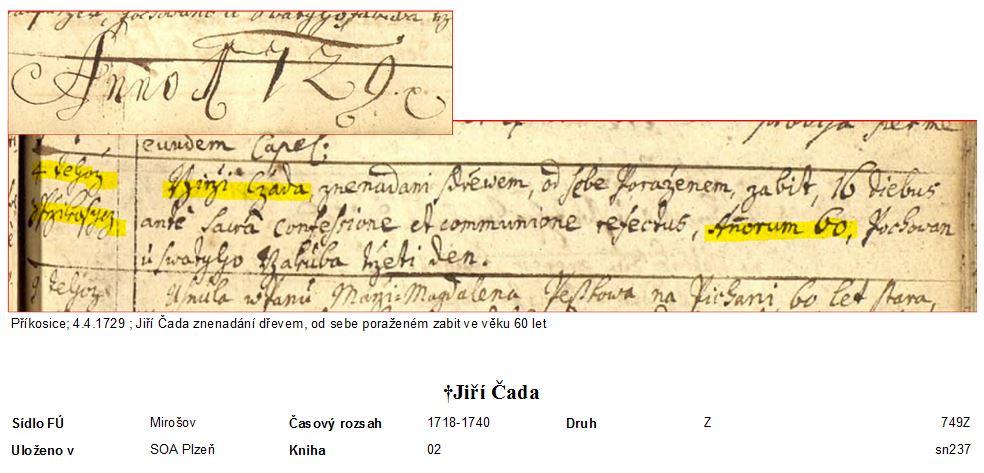 Anno 1729.
eundem Capel:
4 dehoz Girži Cžada, znenadani dřewem, od sebe Poraženem, zabit, 16 diebus
ante sacra confessione et communione refectus, Anorum 60, Pochowan
u swatyho Jakuba třeti den.
Umřela Maři Magdalena na 60 let stara,
Příkosice; 4.4.1729 ; Jiří Čada znenadání dřevem, od sebe poraženém zabit ve věku 60 let
†Jiří Čada
Sídlo FÚ Mirošov Časový rozsah 1718-1740 Druh Z 749Z
Uloženo v SOA Plzeň Kniha 02 sn237